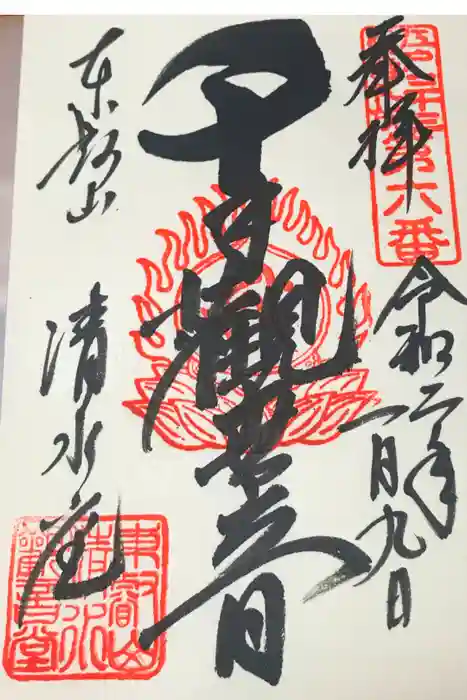 奉拝
第六番
令和二年
一月九日
千手觀世音
東叡山
清水堂
東叡山
清水
觀音堂